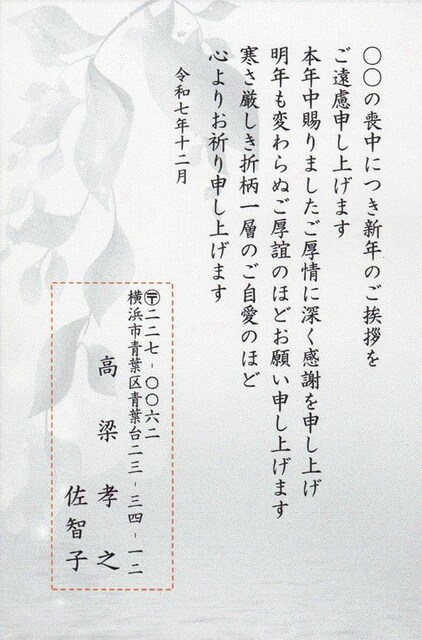 〇〇の喪中につき新年のご挨拶を
ご遠慮申し上げます
本年中賜りましたご厚情に深く感謝を申し上げ
明年も変わらぬご厚誼のほどお願い申し上げます
寒さ厳しき折柄一層のご自愛のほど
心よりお祈り申し上げます
令和七年十二月
〒二二七-〇〇六二
横浜市青葉区青葉台二三-三四-一二
高梁孝之
佐智子